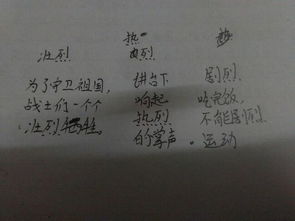 壮烈
为了守卫祖国,
战士们一个个
壮烈牺牲
热
烈
讲台下
响起
热烈
的掌声。
剧烈
吃完饭,
不能剧烈
运动